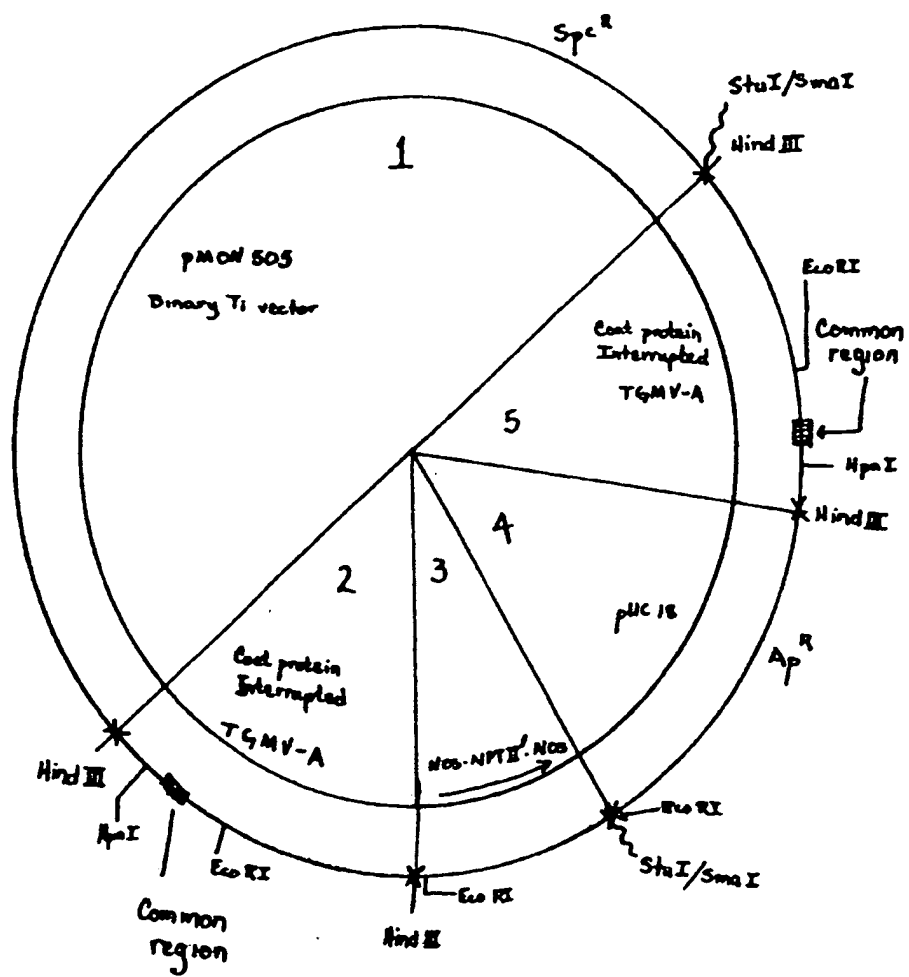 Spc^R
StuI/SmaI
Hind III
1
pMON 505
Binary Ti vector
EcoRI
Common
region
Coat protein
Interrupted
TGMV-A
5
HpaI
Hind III
4
3
2
pUC 18
Ap^R
Coat protein
Interrupted
TGMV-A
NOS-NPTII'-NOS
Hind III
HpaI
EcoRI
EcoRI
StuI/SmaI
EcoRI
Hind III
Common
region